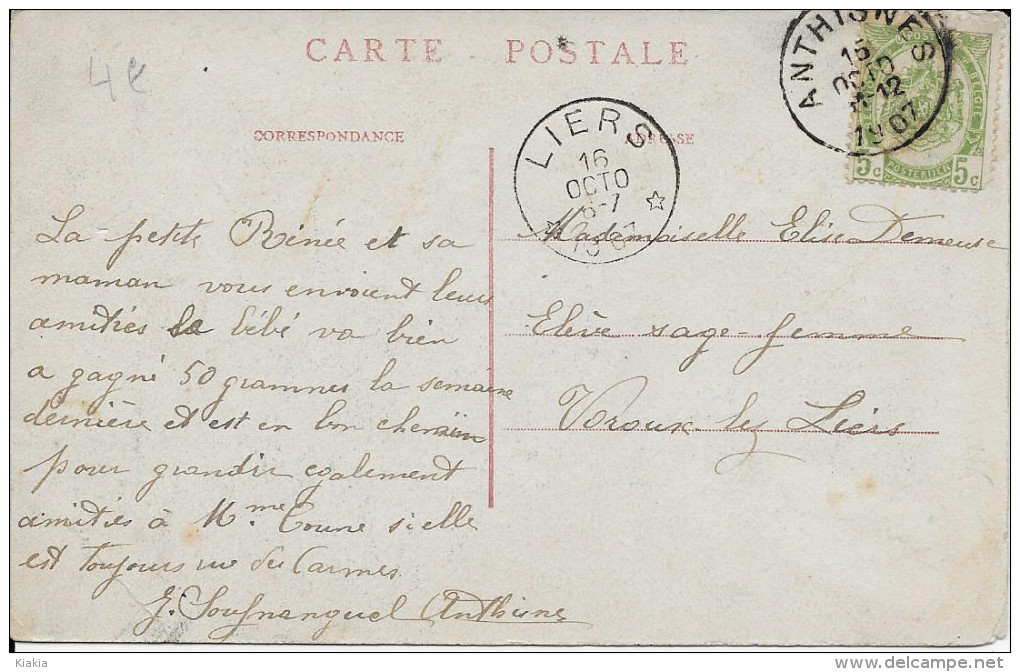 CARTE POSTALE
4€
CORRESPONDANCE
ADRESSE
ANTHISNES
15
OCTO
11-12
1907
LIERS
16
OCTO
6-7
1907
BELGIE
POSTERIJEN
5c 5c
La petite Rénée et sa
maman vous envoient leurs
amitiés le bébé va bien
a gagné 50 grammes la semaine
dernière et est en bon chemin
pour grandir egalement
amitiés à Mme Toune si elle
est toujours rue des Carmes
Mademoiselle Elise Demeuse
Elève sage-femme
Voroux lez Liers
Kiakia
delcampe.net